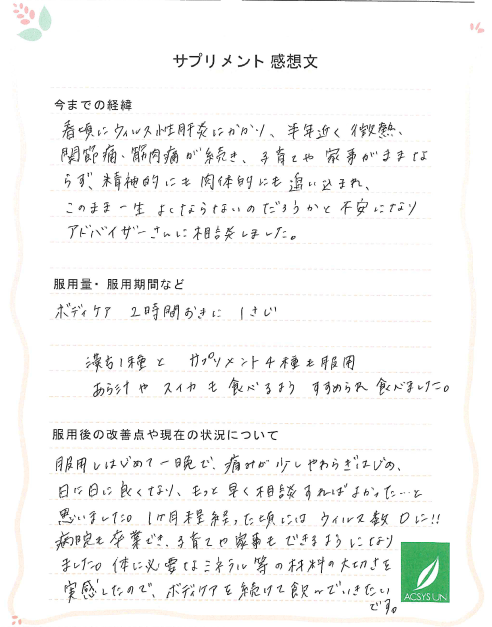 サプリメント 感想文
今までの経緯
春頃にウィルス性肝炎にかかり、半年近く微熱、
関節痛、筋肉痛が続き、子育てや家事がままな
らず、精神的にも肉体的にも追い込まれ、
このまま一生よくならないのだろうかと不安になり
アドバイザーさんに相談しました。
服用量・服用期間など
ボディケア 2時間おきに 1さじ
漢方1種と サプリメント4種も服用
あら汁や スイカも食べるよう すすめられ 食べました。
服用後の改善点や現在の状況について
服用しはじめて一晩で、痛みが少しやわらぎはじめ、
日に日に良くなり、もっと早く相談すればよかった…と
思いました。1ヶ月程経った頃には ウィルス数 0に!!
病院も卒業でき、子育てや家事もできるようになり
ました。体に必要なミネラル等の材料の大切さを
実感したので、ボディケアを続けて飲んでいきたい
です。
ACSYS UN